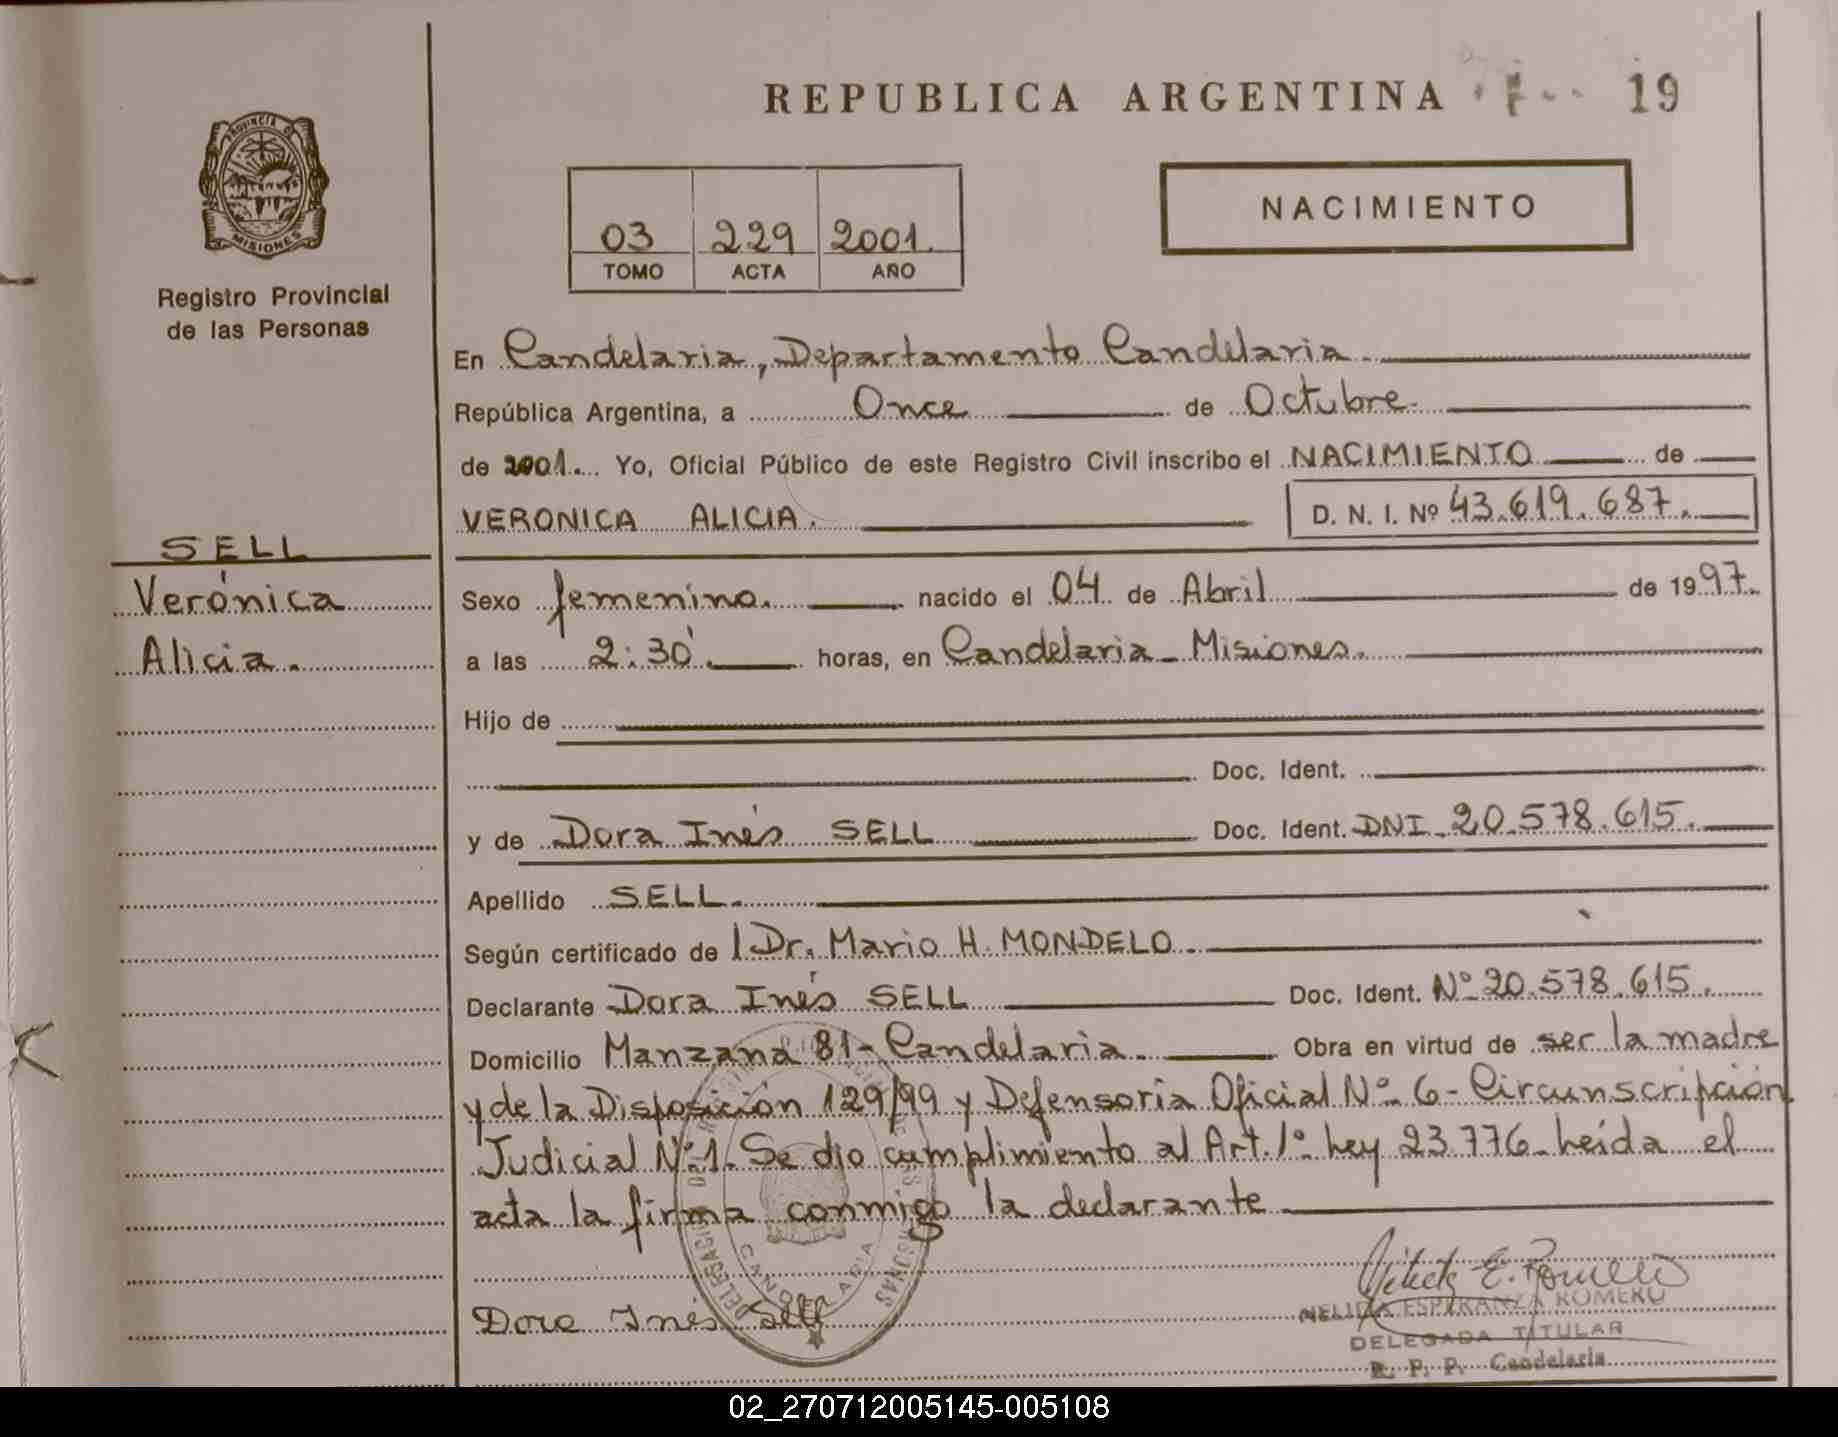 REPUBLICA ARGENTINA 19
PROVINCIA DE
MISIONES
Registro Provincial
de las Personas
03 229 2001.
TOMO ACTA AÑO
NACIMIENTO
En Candelaria, Departamento Candelaria
República Argentina, a Once de Octubre.
de 2001. Yo, Oficial Público de este Registro Civil inscribo el NACIMIENTO de
VERONICA ALICIA. D. N. I. Nº 43.619.687.
SELL
Verónica
Alicia.
Sexo femenino. nacido el 04 de Abril de 1997.
a las 2:30 horas, en Candelaria - Misiones.
Hijo de
Doc. Ident.
y de Dora Inés SELL Doc. Ident. DNI 20.578.615.
Apellido SELL.
Según certificado de Dr. Mario H. MONDELO
Declarante Dora Inés SELL Doc. Ident. Nº 20.578.615.
Domicilio Manzana 81 - Candelaria. Obra en virtud de ser la madre
y de la Disposición 129/99 y Defensoria Oficial Nº 6 - Circunscripción
Judicial Nº 1. Se dio cumplimiento al Art. 1º Ley 23.776 - Leída el
acta la firma conmigo la declarante
CANDELARIA
Dora Inés Sell
NELIDA ESPERANZA ROMERO
DELEGADA TITULAR
R. P. P. Candelaria
02_270712005145-005108